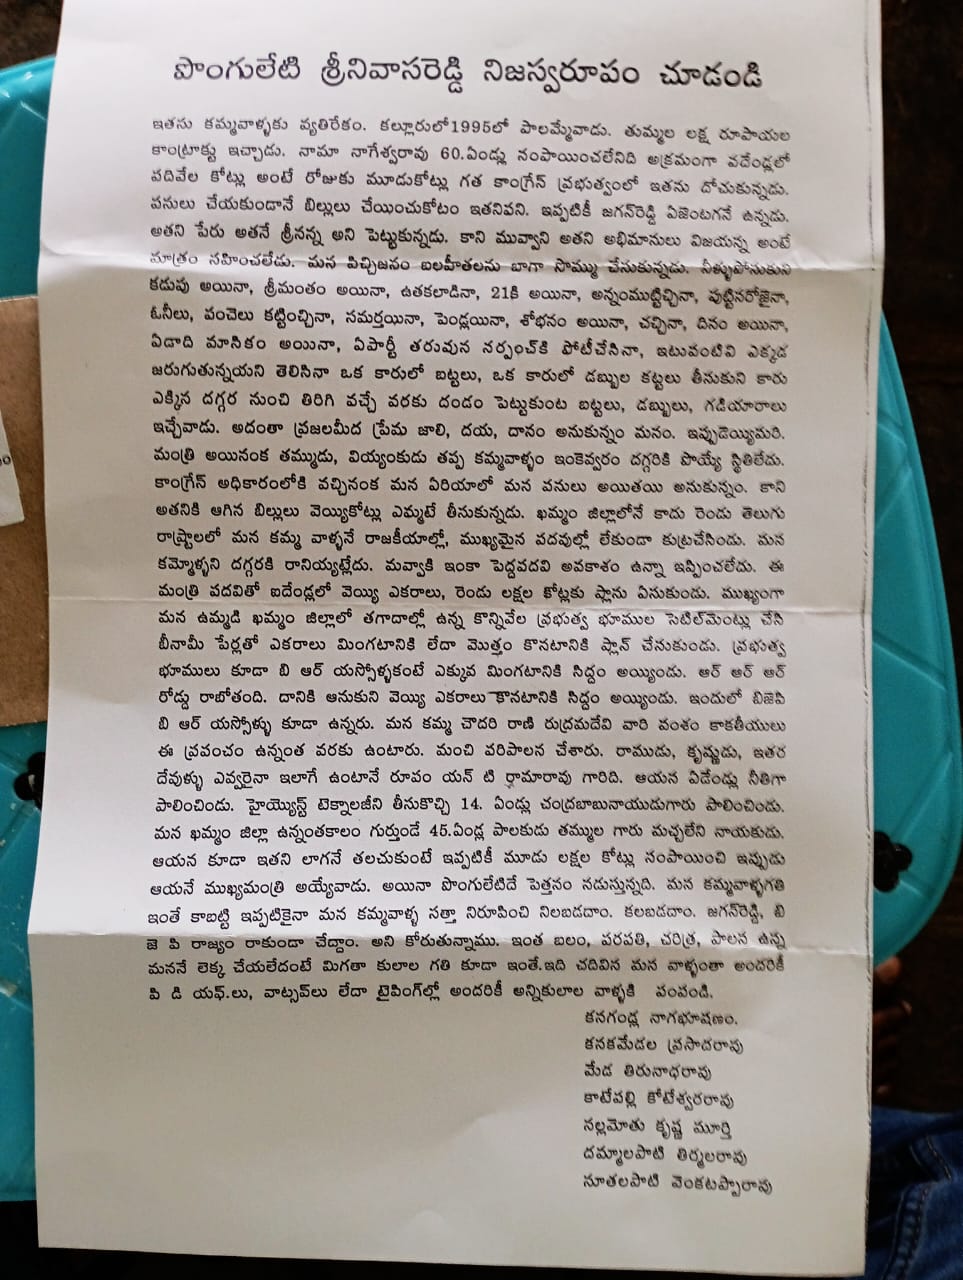 పొంగులేటి శ్రీనివాసరెడ్డి నిజస్వరూపం చూడండి
ఇతను కమ్మవాళ్ళకు వ్యతిరేకం. కల్లూరులో1995లో పాలమ్మేవాడు. తుమ్మల లక్ష రూపాయల
కాంట్రాక్టు ఇచ్చాడు. నామా నాగేశ్వరావు 60.ఏండ్లు సంపాయించలేనిది అక్రమంగా పదేండ్లలో
పదివేల కోట్లు అంటే రోజుకు మూడుకోట్లు గత కాంగ్రేస్ ప్రభుత్వంలో ఇతను దోచుకున్నడు.
పనులు చేయకుండానే బిల్లులు చేయించుకోటం ఇతనిపని. ఇప్పటికీ జగన్‌రెడ్డి ఏజెంటగనే ఉన్నడు.
అతని పేరు అతనే శ్రీనన్న అని పెట్టుకున్నడు. కాని మువ్వాని అతని అభిమానులు విజయన్న అంటే
మాత్రం సహించలేడు. మన పిచ్చిజనం బలహీతలను బాగా సొమ్ము చేసుకున్నడు. నీళ్ళుపోసుకుని
కడుపు అయినా, శ్రీమంతం అయినా, ఉతకలాడినా, 21కి అయినా, అన్నంముట్టిచ్చినా, పుట్టినరోజైనా,
ఓనీలు, పంచెలు కట్టించ్చినా, సమర్తయినా, పెండ్లయినా, శోభనం అయినా, చచ్చినా, దినం అయినా,
ఏడాది మాసికం అయినా, ఏపార్టీ తరువున సర్పంచ్‌కి పోటీచేసినా, ఇటువంటివి ఎక్కడ
జరుగుతున్నయని తెలిసినా ఒక కారులో బట్టలు, ఒక కారులో డబ్బుల కట్టలు తీసుకుని కారు
ఎక్కిన దగ్గర నుంచి తిరిగి వచ్చే వరకు దండం పెట్టుకుంట బట్టలు, డబ్బులు, గడియారాలు
ఇచ్చేవాడు. అదంతా ప్రజలమీద ప్రేమ జాలి, దయ, దానం అనుకున్నం మనం. ఇప్పుడెయ్యిమరి.
మంత్రి అయినంక తమ్ముడు, వియ్యంకుడు తప్ప కమ్మవాళ్ళం ఇంకెవ్వరం దగ్గరికి పొయ్యే స్థితిలేదు.
కాంగ్రేస్ అధికారంలోకి వచ్చినంక మన ఏరియాలో మన పనులు అయితయి అనుకున్నం. కాని
అతనికి ఆగిన బిల్లులు వెయ్యికోట్లు ఎమ్మటే తీసుకున్నడు. ఖమ్మం జిల్లాలోనే కాదు రెండు తెలుగు
రాష్ట్రాలలో మన కమ్మ వాళ్ళనే రాజకీయాల్లో, ముఖ్యమైన పదవుల్లో లేకుండా కుట్రచేసిండు. మన
కమ్మోళ్ళని దగ్గరకి రానియ్యట్లేదు. మవ్వాకి ఇంకా పెద్దపదవి అవకాశం ఉన్నా ఇప్పించలేదు. ఈ
మంత్రి పదవితో ఐదేండ్లలో వెయ్యి ఎకరాలు, రెండు లక్షల కోట్లకు ప్లాను ఏసుకుండు. ముఖ్యంగా
మన ఉమ్మడి ఖమ్మం జిల్లాలో తగాదాల్లో ఉన్న కొన్నివేల ప్రభుత్వ భూముల సెటిల్‌మెంట్లు చేసి
బీనామీ పేర్లతో ఎకరాలు మింగటానికి లేదా మొత్తం కొనటానికి ప్లాన్ చేసుకుండు. ప్రభుత్వ
భూములు కూడా బి ఆర్ యస్సోళ్ళకంటే ఎక్కువ మింగటానికి సిద్దం అయ్యిండు. ఆర్ ఆర్ ఆర్
రోడ్డు రాబోతంది. దానికి ఆనుకుని వెయ్యి ఎకరాలు కొనటానికి సిద్దం అయ్యిండు. ఇందులో బిజెపి
బి ఆర్ యస్సోళ్ళు కూడా ఉన్నరు. మన కమ్మ చౌదరి రాణి రుద్రమదేవి వారి వంశం కాకతీయులు
ఈ ప్రపంచం ఉన్నంత వరకు ఉంటారు. మంచి పరిపాలన చేశారు. రాముడు, కృష్ణుడు, ఇతర
దేవుళ్ళు ఎవ్వరైనా ఇలాగే ఉంటానే రూపం యన్ టి ర్రామారావు గారిది. ఆయన ఏడేండ్లు నీతిగా
పాలించిండు. హైయ్యెస్ట్ టెక్నాలజీని తీసుకొచ్చి 14. ఏండ్లు చంద్రబాబునాయుడుగారు పాలించిండు.
మన ఖమ్మం జిల్లా ఉన్నంతకాలం గుర్తుండే 45.ఏండ్ల పాలకుడు తమ్ముల గారు మచ్చలేని నాయకుడు.
ఆయన కూడా ఇతని లాగనే తలచుకుంటే ఇప్పటికీ మూడు లక్షల కోట్లు సంపాయించి ఇప్పుడు
ఆయనే ముఖ్యమంత్రి అయ్యేవాడు. అయినా పొంగులేటిదే పెత్తనం నడుస్తున్నది. మన కమ్మవాళ్ళగతి
ఇంతే కాబట్టి ఇప్పటికైనా మన కమ్మవాళ్ళ సత్తా నిరూపించి నిలబడదాం. కలబడదాం. జగన్‌రెడ్డి, బి
జె పి రాజ్యం రాకుండా చేద్దాం. అని కోరుతున్నాము. ఇంత బలం, పరపతి, చరిత్ర, పాలన ఉన్న
మననే లెక్క చేయలేదంటే మిగతా కులాల గతి కూడా ఇంతే.ఇది చదివిన మన వాళ్ళంతా అందరికీ
పి డి యఫ్.లు, వాట్సప్‌లు లేదా టైపింగ్‌ల్లో అందరికీ అన్నికులాల వాళ్ళకి పంపండి.
కనగండ్ల నాగభూషణం.
కనకమేడల ప్రసాదరావు
మేడ తిరునాధరావు
కాటేపల్లి కోటేశ్వరరావు
నల్లమోతు కృష్ణ మూర్తి
దమ్మాలపాటి తిర్మలరావు
సూతలపాటి వెంకటప్పారావు